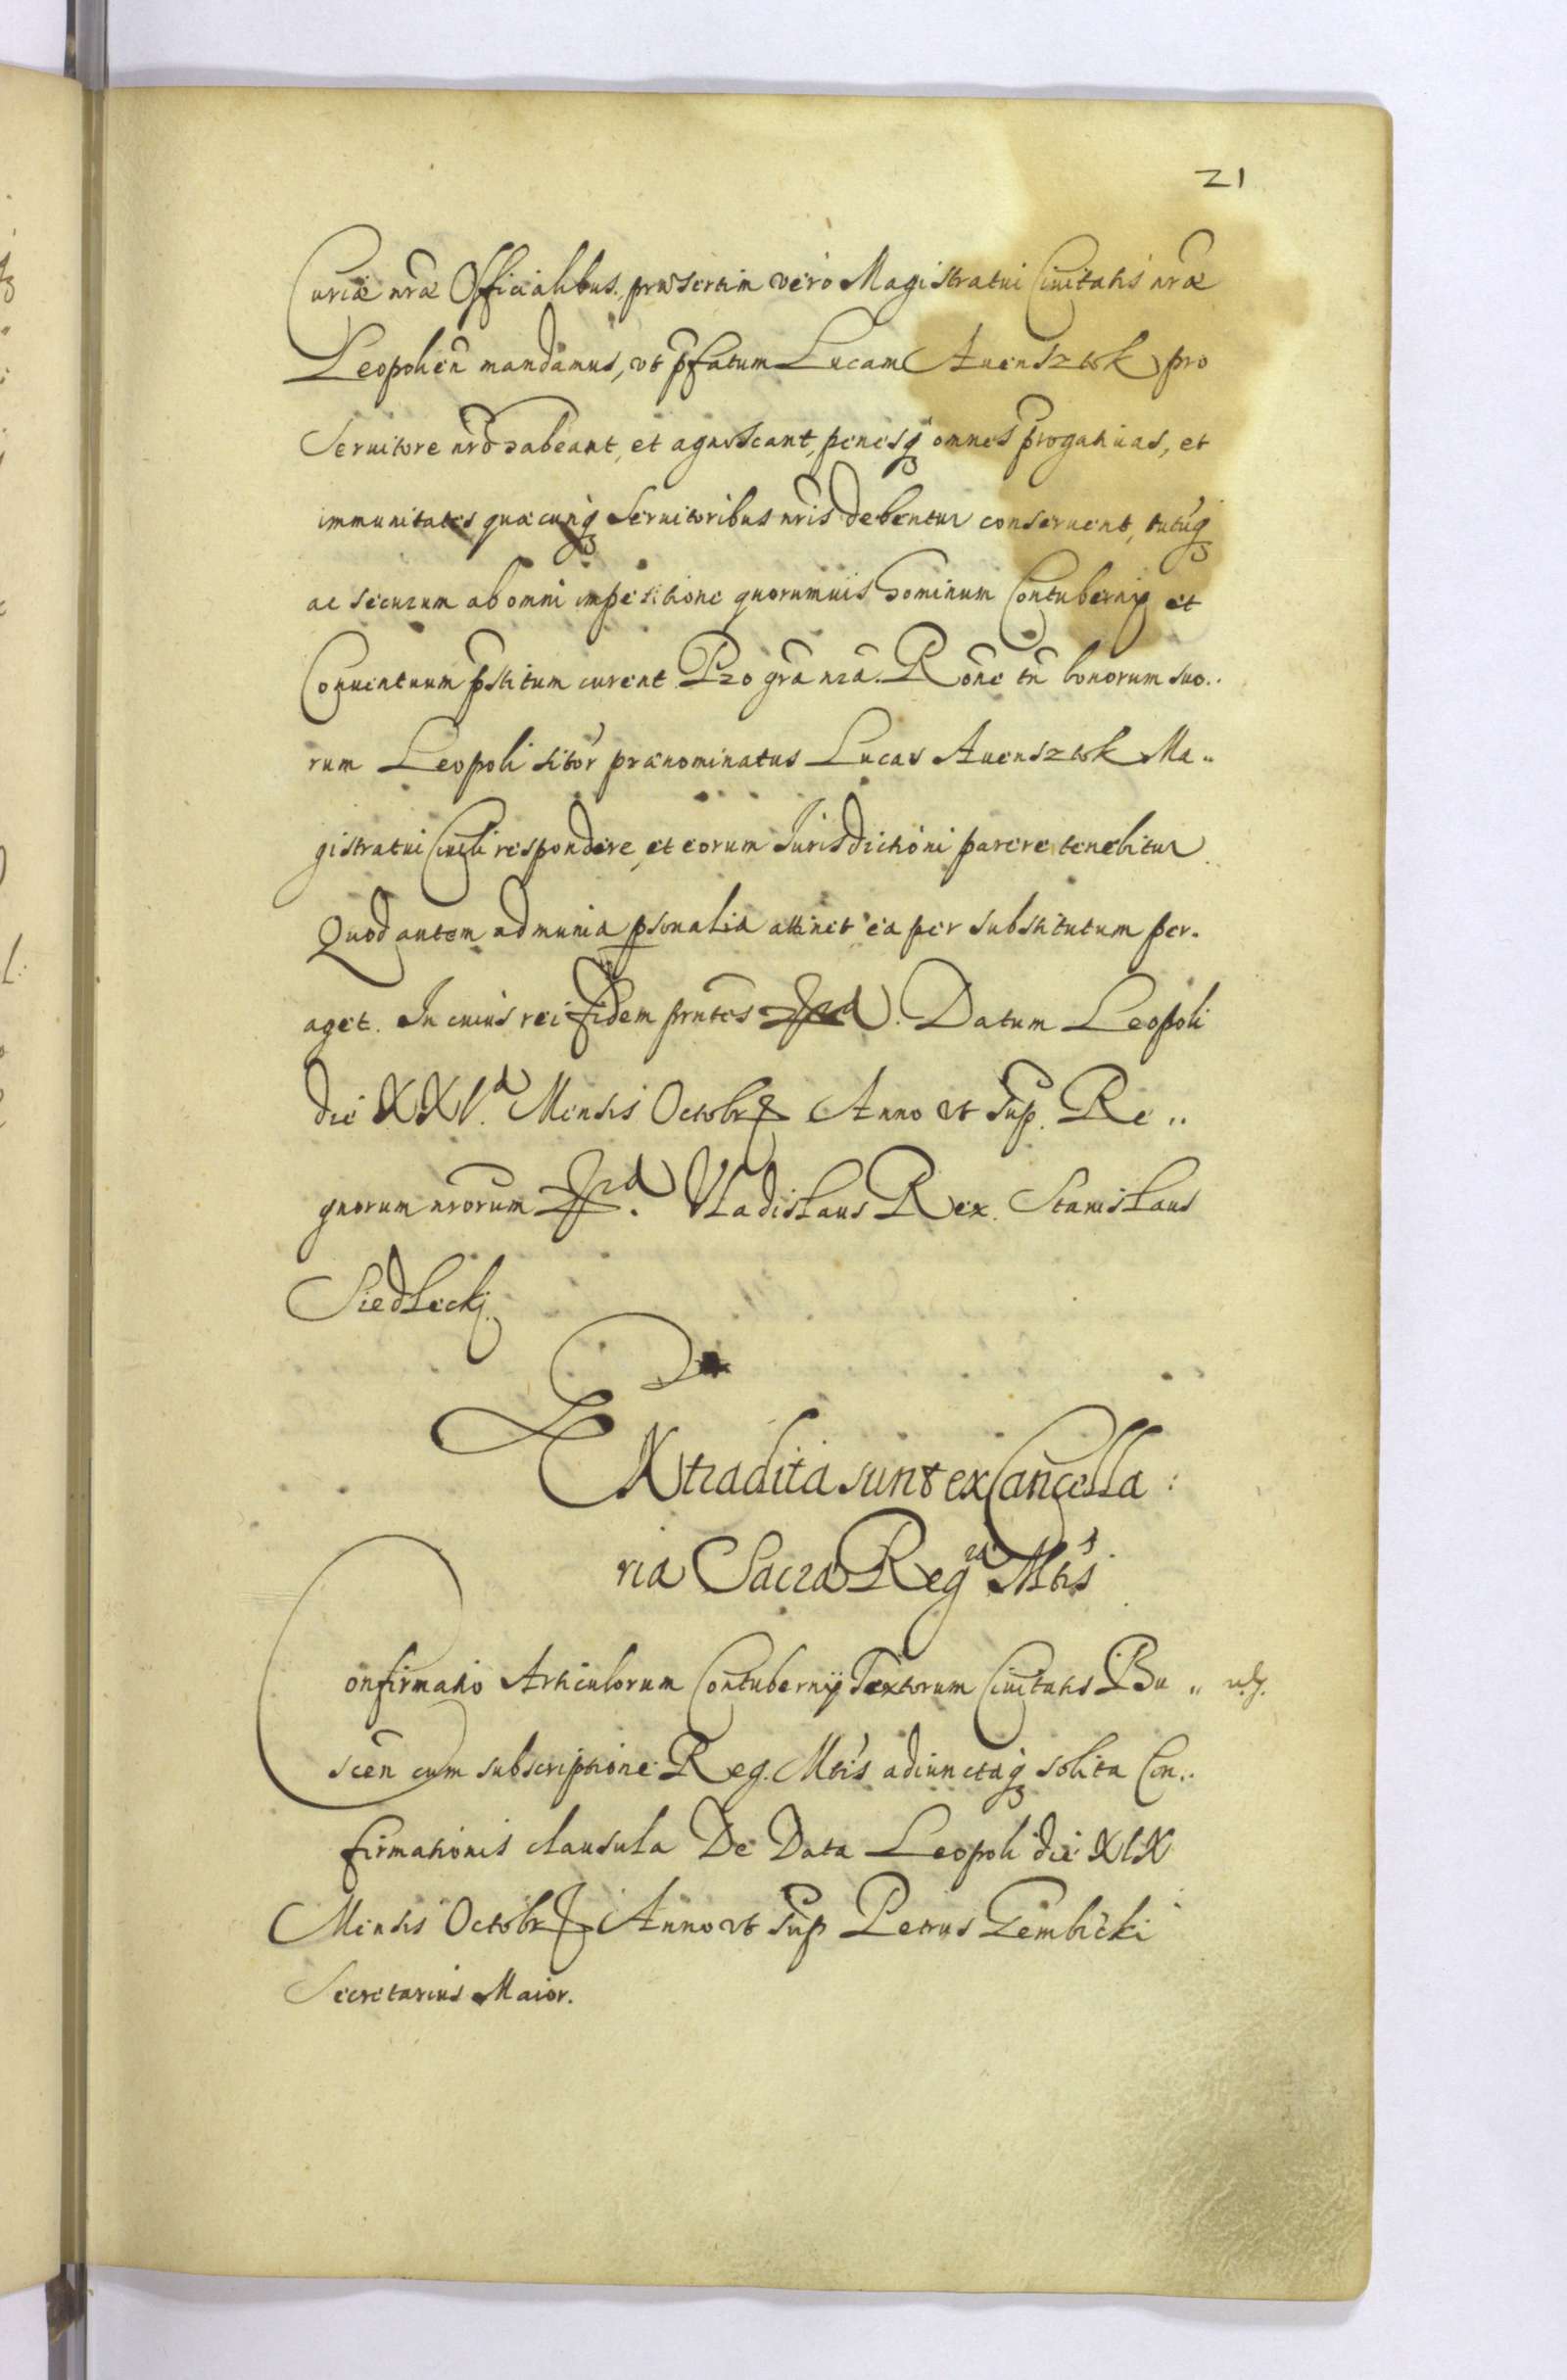 21
Curiæ nræ Officialibus, præsertim vero Magistratui Ciuitatis nræ
Leopolien mandamus, vt pfatum Lucam Auensztok pro
Seruitore nro habeant, et agnoscant, penesq omnes progatiuas, et
immunitates quæcunq Seruitoribus nris debentur conseruent, tutuq
ac securum ab omni impetitione quorumuis hominum Contubernij et
Conuentuum pstitum curent Pro gra nra. Rone tn bonorum suo..
rum Leopoli sitor prænominatus Lucas Auensztok Ma..
gistratui Ciuili respondere, et eorum Jurisdictioni parere tenebitur
Quod autem ad munia psonalia attinet ea per substitutum per.
aget. In cuius rei fidem pntes. Datum Leopoli
die XXV.a Mensis Octobr Anno vt Sup. Re..
gnorum nrorum. Vladislaus Rex. Stanislaus
Siedlecki.
Extradita sunt ex Cancella:
ria Sacra Reg Mtis
Confirmatio Articulorum Contubernij Textorum Ciuitatis Bu..
scen cum subscriptione Reg. Mtis adiunctaq solita Con..
firmationis clausula De Data Leopoli die XIX
Mensis Octobr Anno vt Sup Petrus Gembicki
Secretarius Maior.